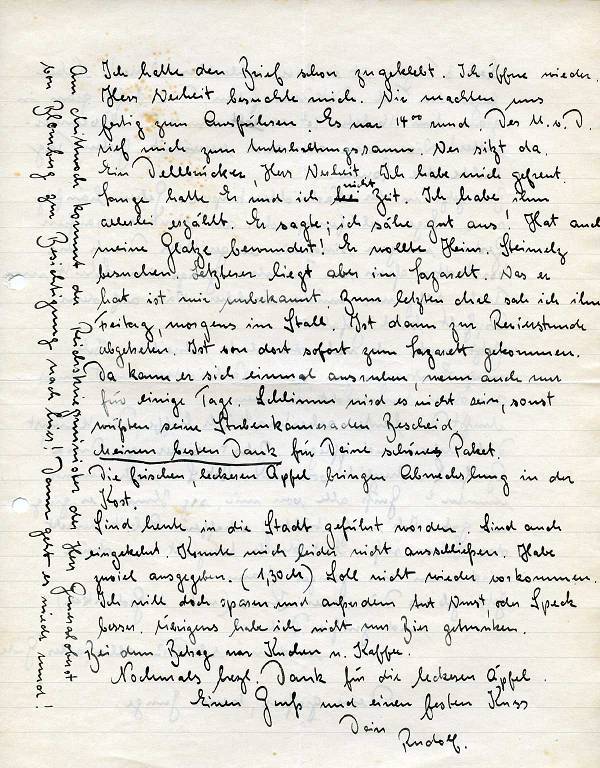 Ich hatte den Brief schon zugeklebt. Ich öffne wieder.
Herr Verheit besuchte mich. Wir machten uns
fertig zum Ausführen. Es war 14⁰⁰ rund. Der U. v. D.
rief mich zum Unterhaltungsraum. Wer sitzt da.
Ein Dellbrücker, Herr Verheit. Ich habe mich gefreut.
Lange hatte Er und ich nicht Zeit. Ich habe ihm
allerlei erzählt. Er sagte; ich sähe gut aus! Hat auch
meine Glatze bewundert! Er wollte Heinr. Steinelz
besuchen. Letzterer liegt aber im Lazarett. Was er
hat ist mir unbekannt. Zum letzten Mal sah ich ihn
Freitag, morgens im Stall. Ist dann zur Revierstunde
abgetreten. Ist von dort sofort zum Lazarett gekommen.
Da kann er sich einmal ausruhen, wenn auch nur
für einige Tage. Schlimm wird es nicht sein, sonst
wüßten seine Stubenkameraden Bescheid.
Meinen besten Dank für Deine schönes Paket.
Die frischen, leckeren Äpfel bringen Abwechslung in der
Kost.
Sind heute in die Stadt geführt worden. Sind auch
eingekehrt. Konnte mich leider nicht ausschließen. Habe
zuviel ausgegeben. (1,30 M) Soll nicht wieder vorkommen.
Ich will doch sparen und außerdem tut Wurst, oder Speck
besser. Übrigens habe ich nicht nur Bier getrunken.
Bei dem Betrag war Kuchen u. Kaffee.
Nochmals herzl. Dank für die leckeren Äpfel.
Einen Gruß und einen festen Kuss
Dein
Rudolf.
Am Mittwoch kommt der Reichskriegsminister der Herr Generaloberst
von Blomberg zur Besichtigung nach hier! Dann geht es wieder rund!